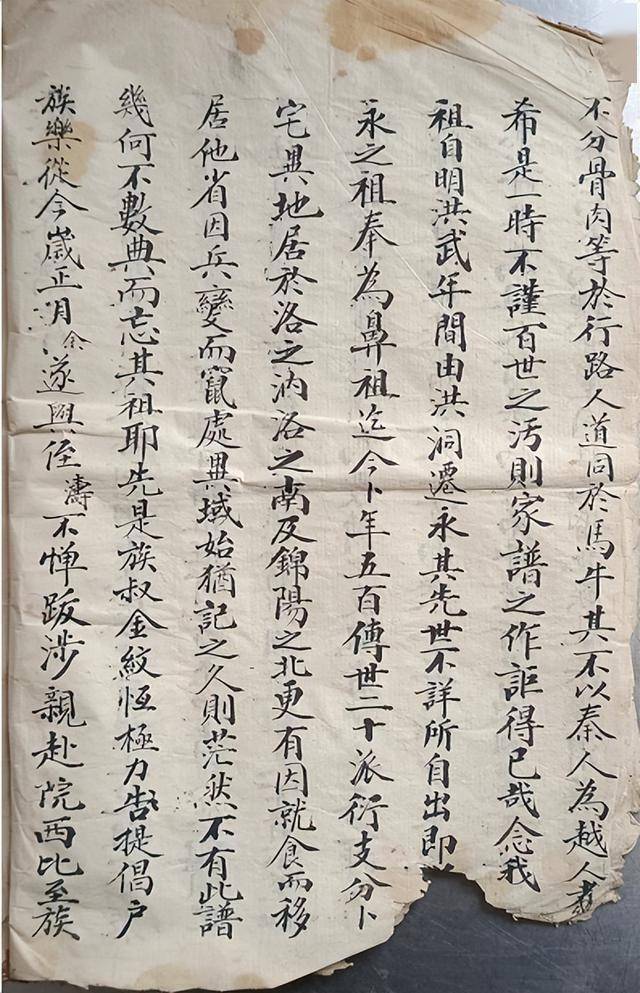 不分骨肉等於行路人道同於馬牛其不以秦人為越人者
希是一時不謹百世之污則家譜之作詎得已哉念我
祖自明洪武年間由洪洞遷永其先世不詳所自出即
永之祖奉為鼻祖迄今卜年五百傳世二十派衍支分卜
宅異地居於洛之汭洛之南及錦陽之北更有因就食而移
居他省因兵變而竄處異域始猶記之久則茫然不有此譜
幾何不數典而忘其祖耶先是族叔金紋恆極力告提倡戶
族樂從今歲正月余遂與侄濤不憚跋涉親赴院西比至族